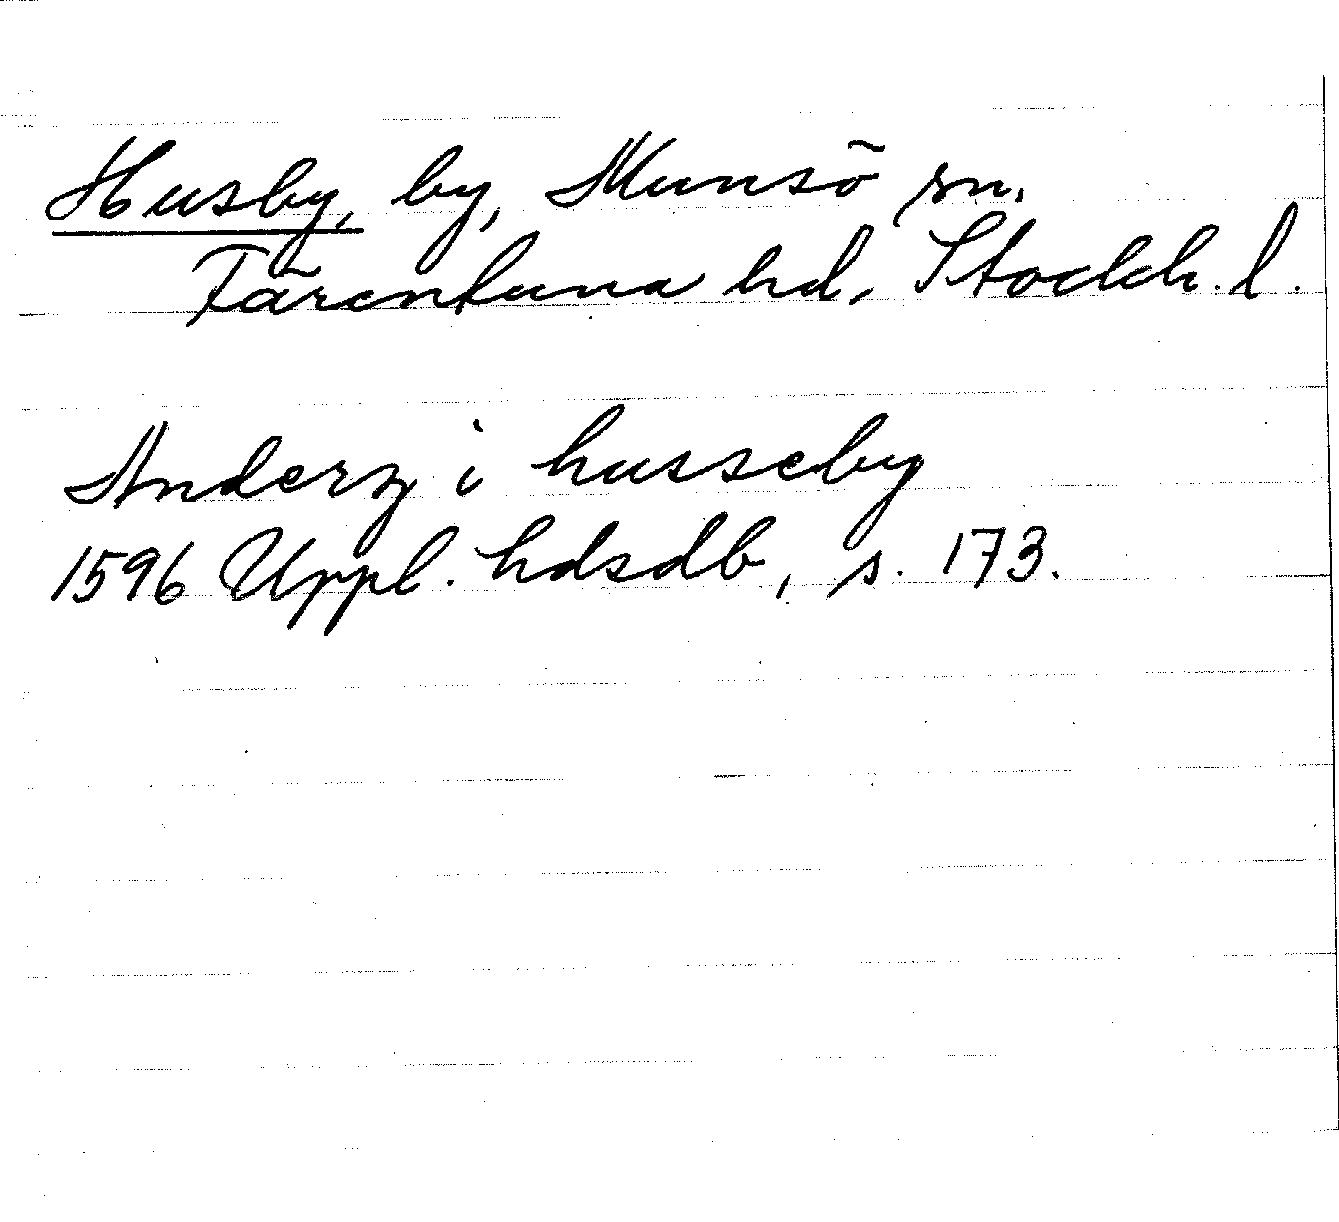 Husby, by, Munsö sn.
Färentuna hd, Stockh. l.
Anderz i husseby
1596 Uppl. hdsdb, s. 173.